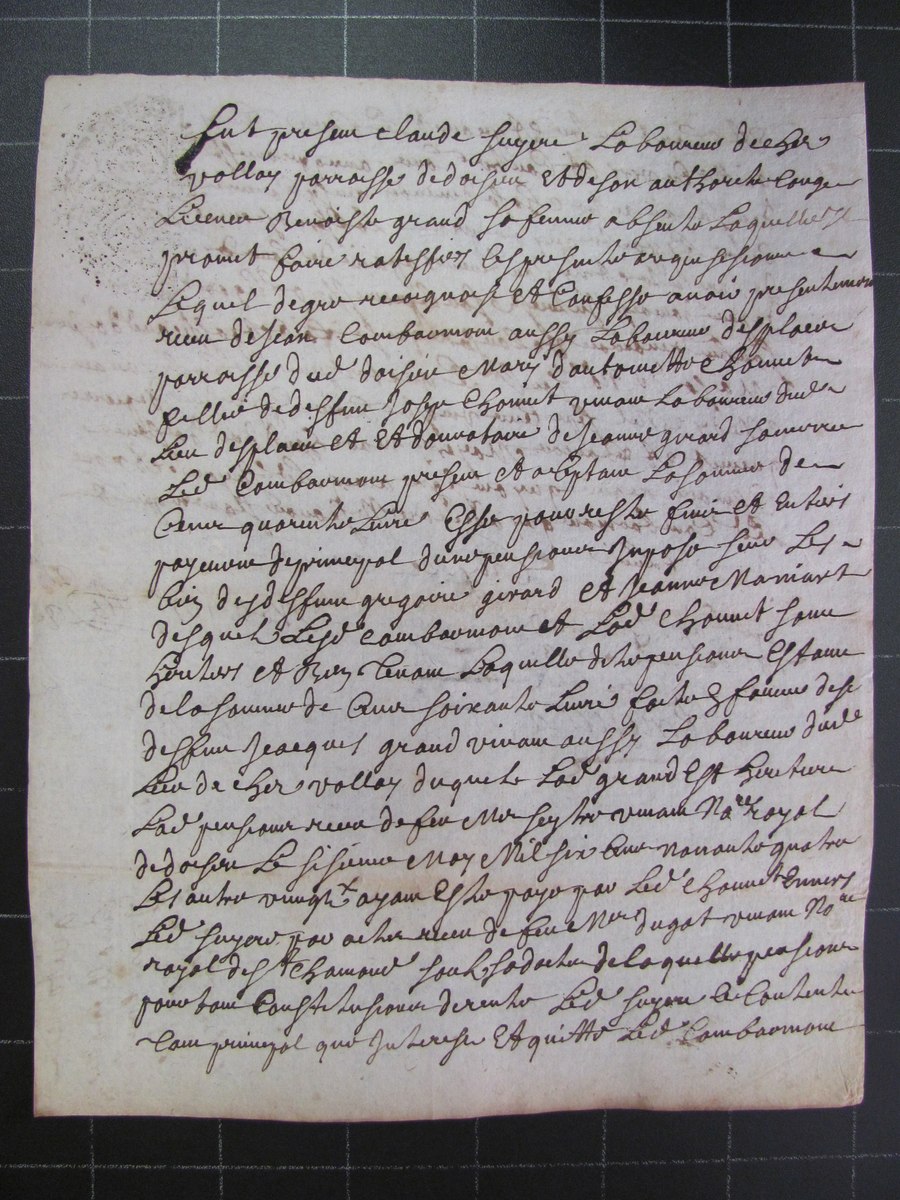 Fut presen Claude Suyere Laboureur de cher
vollay parroisse de doisieu Et de son authorite Conge
Licence Benoiste grand sa femme absente Laquelle Il
promet faire rateffier Les presente a requisisionne
Lequel de gre recognoist Et Confesse avoir presentemen
receu de Jean Combarmon aussy Laboureur desplaen
parroisse dud doisieu Mary d'antoinette Chonnet
fellie de deffun Josep Chonnet vivan Laboureur dud
Lieu desplaen Et Et donnataire de Jeanne girard sa mere
Led Combarmon presen Et aceptan La somme de
Cenn quarente Livre Esse pour reste finie Et Entiers
payement de principal d'une pensionne Inpose sur Les
bien desd deffun gregoire girard Et Jeanne Marviart
desquels Lesd Combarmon Et Lad Chonnet sonn
heritiers Et Bien Tenan Laquelle ditte pensionne Estann
de la somme de Cenn soixante Livre faite En faveur de
deffun Jeacques grand vivan aussy Laboureur dud
Lieu de cher vollay duquele Lad grand Est heritiere
Lad pensionne receu de feu Me seytre vivan No.re royal
de doisieu Le sisieme May Mil six Cen nonante quatre
Les autre vingt £ ayan Este paye par Led Chonnet Envers
Led Suyere par acte receu de feu Me dugat vivan No.re
royal de St Chamond soubs sa datte de laquelle pensionne
pourtan Constitusionne de rente Led Suyere Ce Contente
Tan prinsipal que Interest Et quitte Led Combarmon